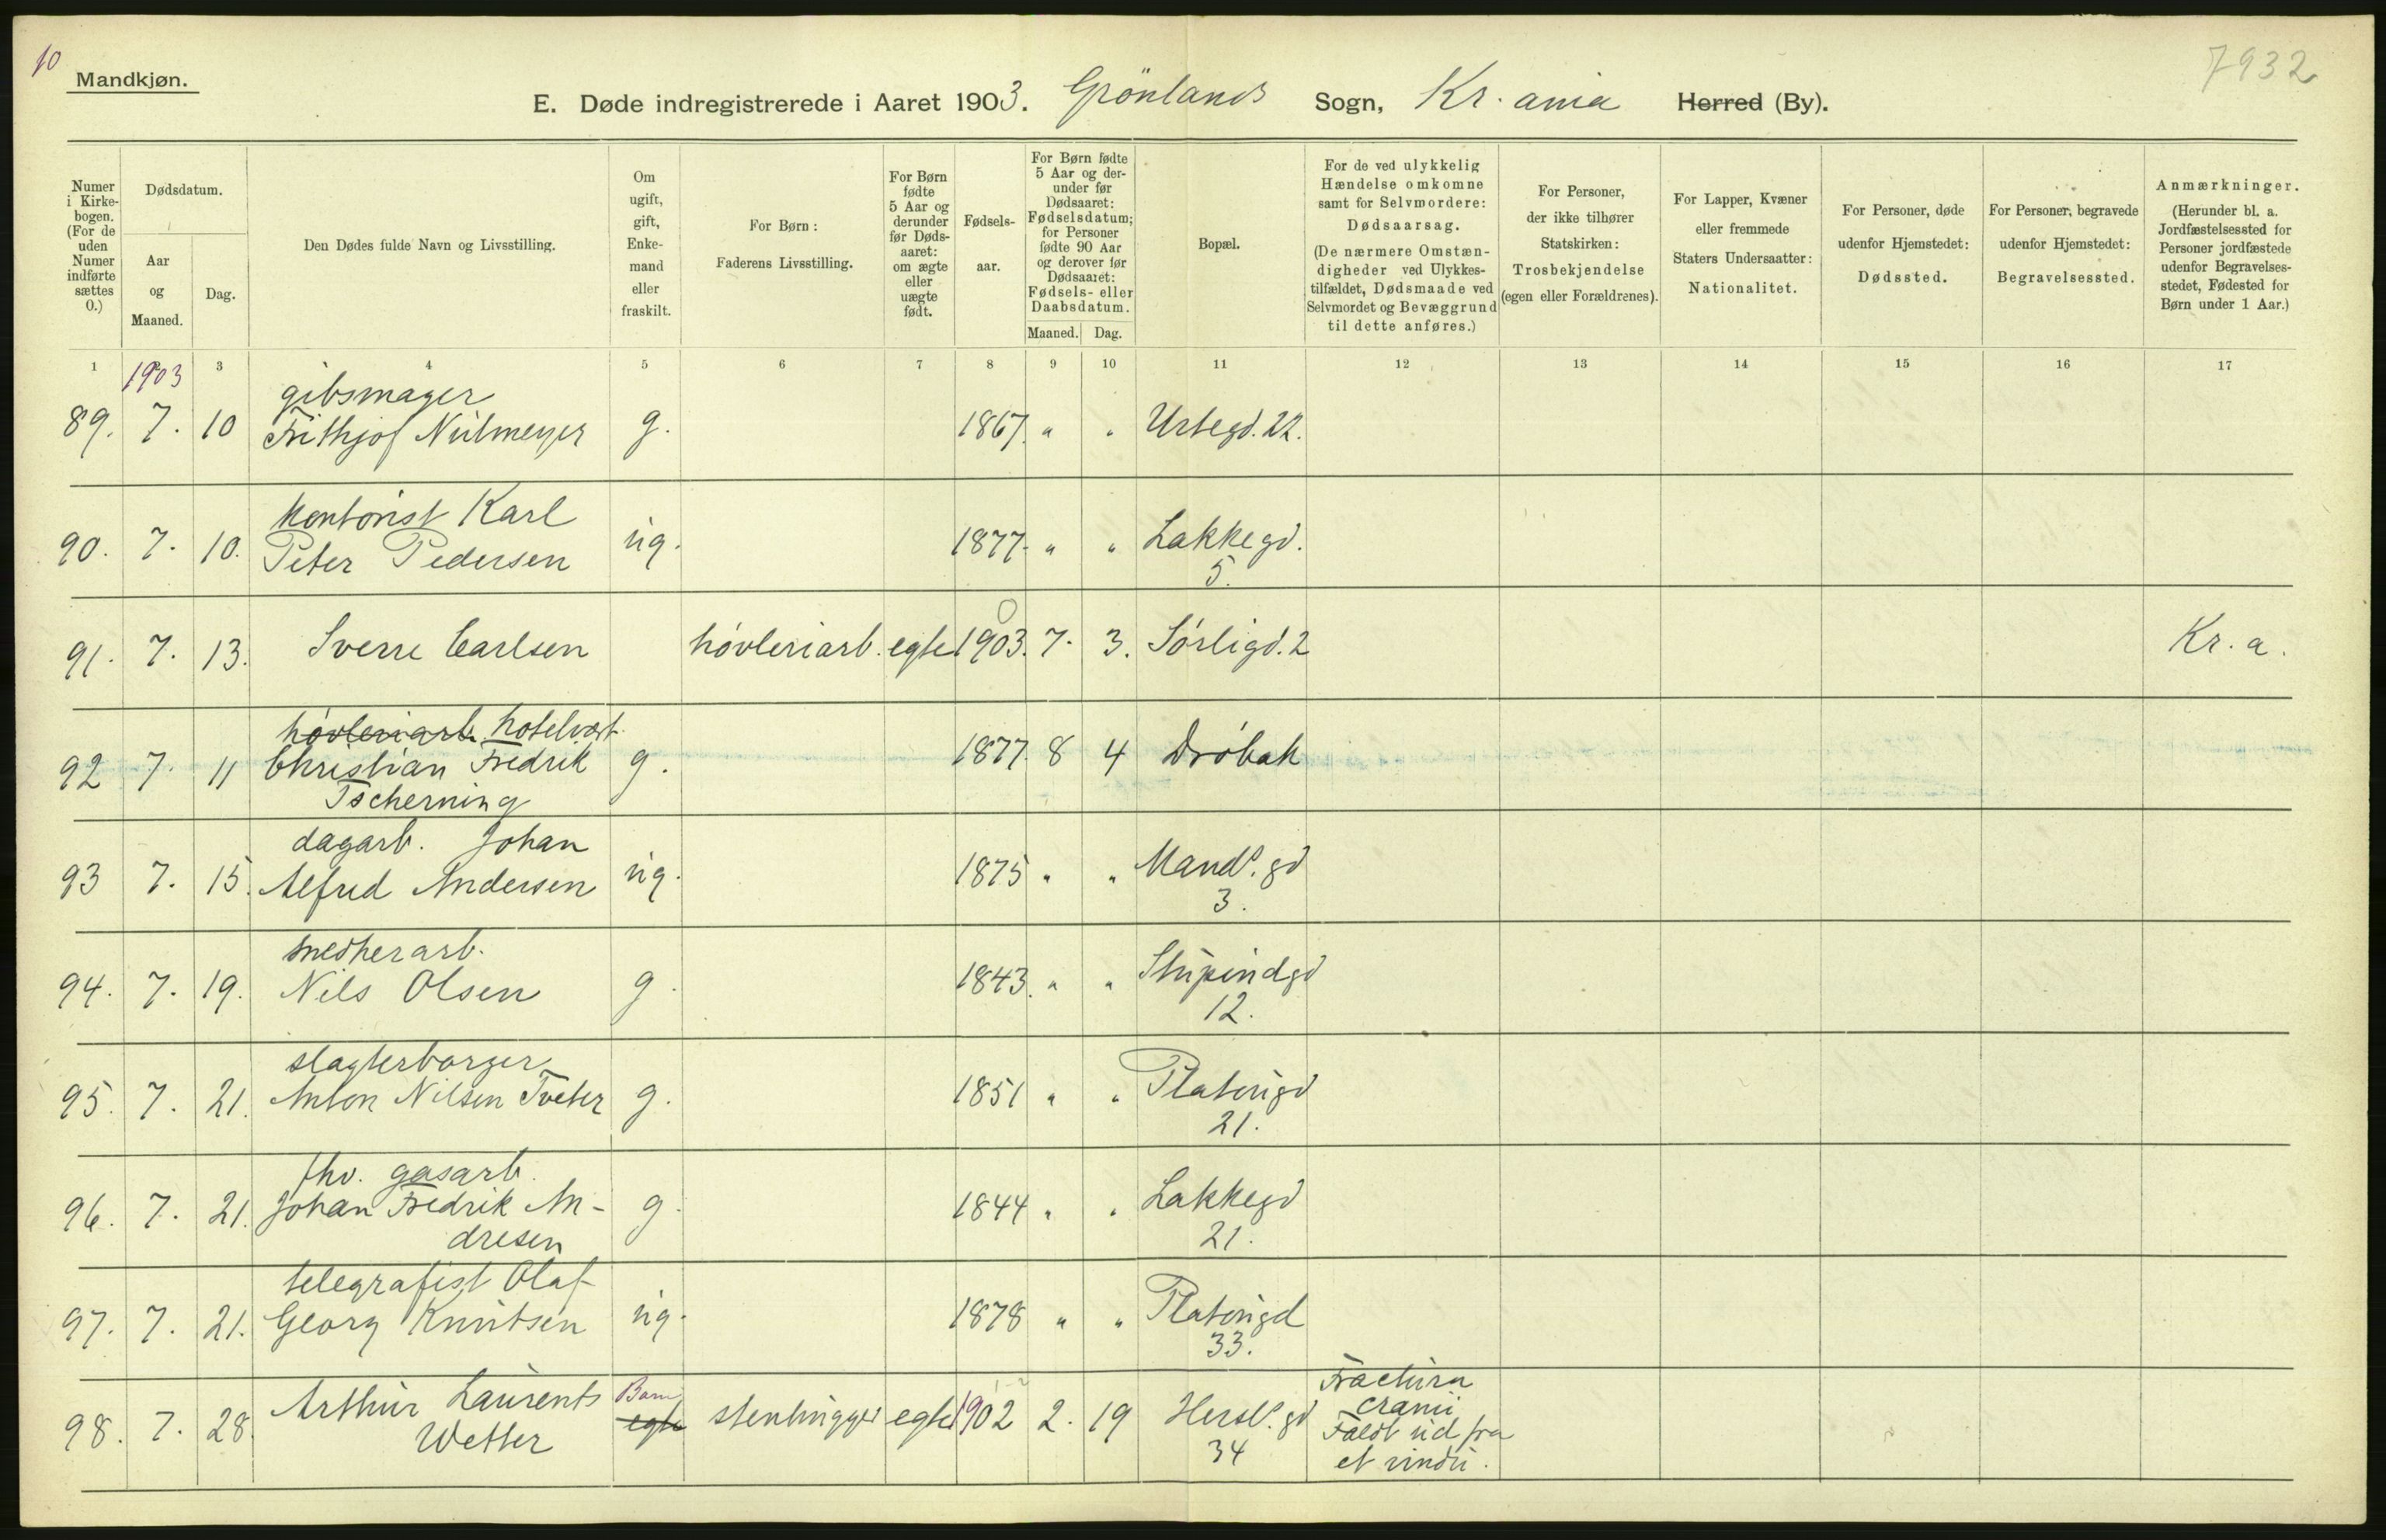 10
Mandkjøn.
7932
E. Døde indregistrerede i Aaret 1903. Grönlands Sogn, Kr.ania Herred (By).
Numer i Kirkebogen. (For de uden Numer indførte sættes 0.)
Dødsdatum.
Aar og Maaned.
Dag.
Den Dødes fulde Navn og Livsstilling.
Om ugift, gift, Enkemand eller fraskilt.
For Børn: Faderens Livsstilling.
For Børn fødte 5 Aar og derunder før Dødsaaret: om ægte eller uægte født.
Fødselsaar.
For Børn fødte 5 Aar og derunder før Dødsaaret: Fødselsdatum; for Personer fødte 90 Aar og derover før Dødsaaret: Fødsels- eller Daabsdatum.
Maaned. Dag.
Bopæl.
For de ved ulykkelig Hændelse omkomne samt for Selvmordere: Dødsaarsag. (De nærmere Omstændigheder ved Ulykkestilfældet, Dødsmaade ved Selvmordet og Bevæggrund til dette anføres.)
For Personer, der ikke tilhører Statskirken: Trosbekjendelse (egen eller Forældrenes).
For Lapper, Kvæner eller fremmede Staters Undersaatter: Nationalitet.
For Personer, døde udenfor Hjemstedet: Dødssted.
For Personer, begravede udenfor Hjemstedet: Begravelsessted.
Anmærkninger. (Herunder bl. a. Jordfæstelsessted for Personer jordfæstede udenfor Begravelsesstedet, Fødested for Børn under 1 Aar.)
1 1903 3 4 5 6 7 8 9 10 11 12 13 14 15 16 17
gibsmager
89. 7. 10 Frithjof Nülmeyer g. 1867. " " Urtegd. 22.
kontorist Karl
90. 7. 10. Peter Pedersen ug. 1877. " " Lakkegd.
5.
0
91. 7. 13. Sverre Carlsen høvleriarb. egte 1903. 7. 3. Sörligd. 2 Kr.a.
høvleriarb. hotelvært
92 7. 11 Christian Fredrik g. 1877. 8 4 Dróbak
Tscherning
dagarb. Johan
93 7. 15. Alfred Andersen ug. 1875 " " Mands. gd
3.
snedkerarb.
94. 7. 19. Nils Olsen g. 1843. " " Stupindgd
12.
slagterborger
95. 7. 21. Anton Nilsen Tveter g. 1851 " " Platougd
21.
fhv. gasarb.
96. 7. 21. Johan Fredrik An- g. 1844 " " Lakkegd
dresen 21.
telegrafist Olaf
97. 7. 21. Georg Knutsen ug. 1878 " " Platougd
33.
Arthur Laurents Barn Fractura
98. 7. 28. Wetter egte stenhugger egte 1902 2. 19 Hersl. gd cranii
34 Faldt ud fra
et vindu.